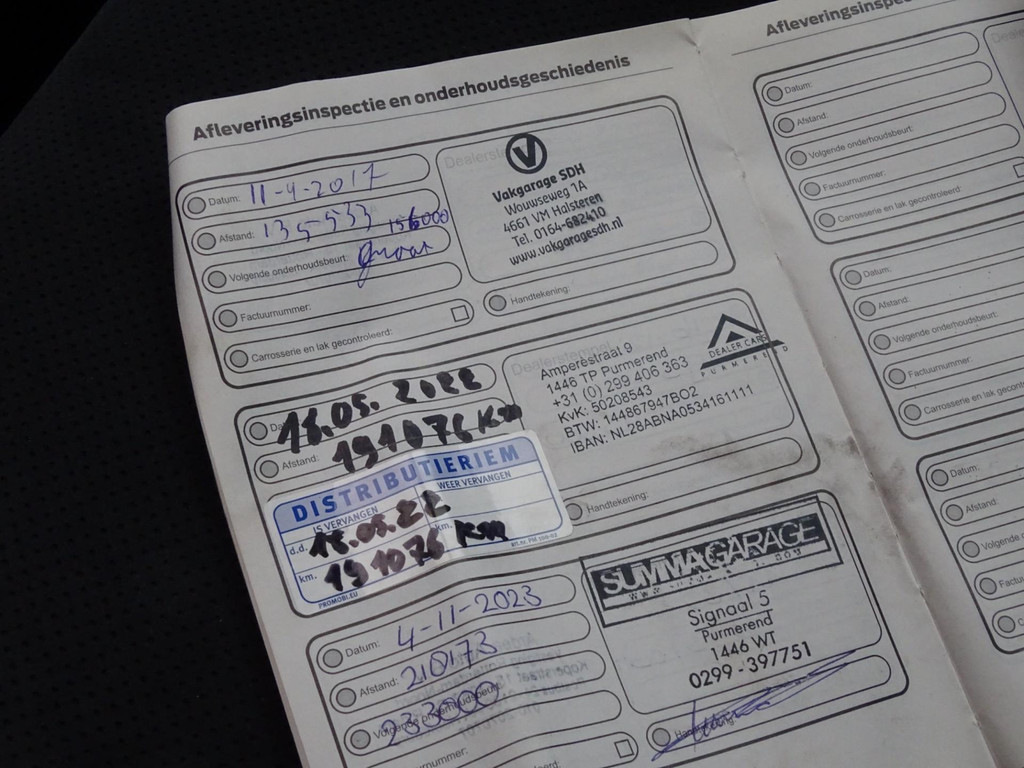 Afleveringsinspectie en onderhoudsgeschiedenis
Datum: 11-4-2017
Afstand: 135-533 156000
Volgende onderhoudsbeurt:
Factuurnummer:
Carrosserie en lak gecontroleerd:
Vakgarage SDH
Wouwseweg 1A
4661 VM Halsteren
Tel. 0164-682410
www.vakgaragesdh.nl
Handtekening:
18.05.2022
Afstand: 191076 Km
DISTRIBUTIERIEM
IS VERVANGEN
WEER VERVANGEN
d.d. 18.05.22
km. 191076 Km
km.
PROMOBI.EU
Dealerstempel
Amperestraat 9
1446 TP Purmerend
+31 (0) 299 406 363
KvK: 50208543
BTW: 144867947BO2
IBAN: NL28ABNA0534161111
DEALER CARS
PURMEREND
Handtekening:
Datum: 4-11-2023
Afstand: 210173
Volgende onderhoudsbeurt: 233000
SUMMA GARAGE
Signaal 5
Purmerend
1446 WT
0299-397751
Afleveringsinspec
Datum:
Afstand:
Volgende onderhoudsbeurt:
Factuurnummer:
Carrosserie en lak gecontroleerd:
Datum:
Afstand:
Volgende onderhoudsbeurt:
Factuurnummer:
Carrosserie en lak gecontrole
Datum:
Afstand:
Volgende o
Factuu
C